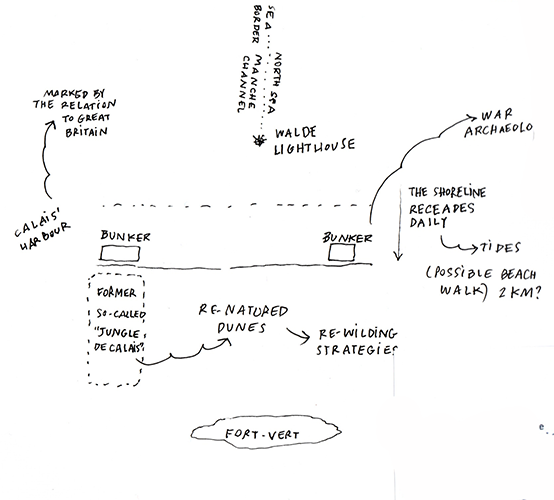 SEA... NORTH SEA
BORDER MANCHE
CHANNEL
WALDE
LIGHTHOUSE
MARKED BY
THE RELATION
TO GREAT
BRITAIN
CALAIS'
HARBOUR
WAR
ARCHAEOLO
THE SHORELINE
RECEADES
DAILY
TIDES
(POSSIBLE BEACH
WALK) 2 KM?
BUNKER
BUNKER
FORMER
SO-CALLED
"JUNGLE
DE CALAIS"
RE-NATURED
DUNES
RE-WILDING
STRATEGIES
FORT-VERT
e..